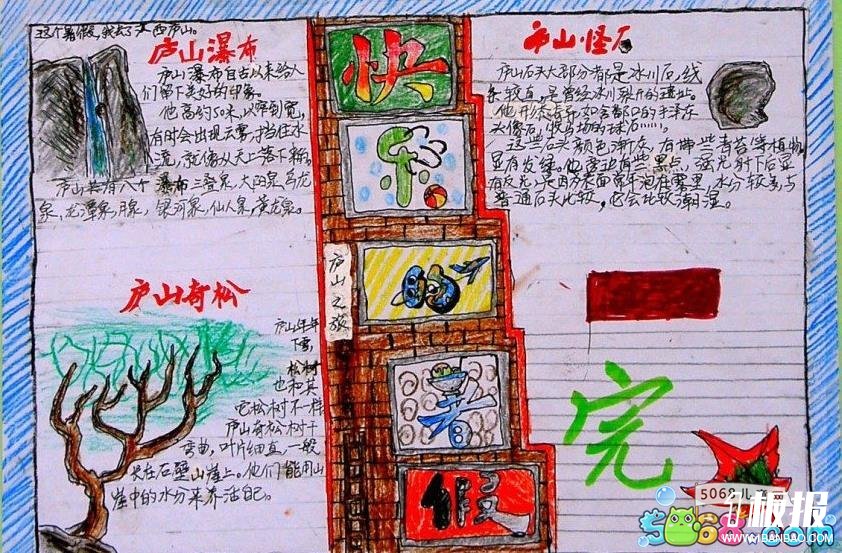 这个暑假,我去了江西庐山。
庐山瀑布
庐山瀑布自古以来给人
们留下美好的印象。
他高约50米,以窄到宽,
有时会出现云雾,挡住水
流,就像从天上落下稀。
庐山共有八个瀑布三叠泉,大阳泉,乌龙
泉,龙潭泉,银河泉,仙人泉,黄龙泉。
庐山奇松
庐山年年
下雪,
松树
也和其
它松树不一样
庐山奇松树干
弯曲,叶片细直,一般
长在石壁山崖上。他们能用山
崖中的水分来养活自己。
快
乐
的
暑
假
庐山之旅
庐山怪石
庐山石头大部分都是冰川石,线
条较直,是曾经冰川裂开的遗址。
他形状各异,如含鄱口的毛泽东
头像石
这些石头颜色渐灰,有一些青苔等植物
显有发绿。他旁边有些黑点,强光射下后显
有反光,是因为表面常年泡在雾里,水分较多,与
普通石头比较,它会比较潮湿。
完
5068儿
网
板报
5068
WWW.1BANBAO.COM